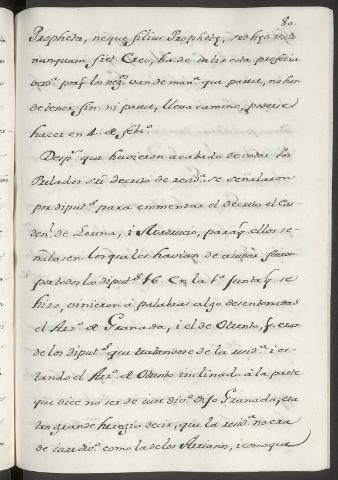 80.
Propheta, neque filius Prophetę, sed hęc
nunquam fiet. Creo, ha de salir esta profecia
verd.ª porq. los neg.ˢ van de man.ª que parece, no han
de tener fin. ni parece, lleva camino, poderse
hacer en 4. de feb.º
Desp.ˢ que huvieron acabado de votar los
Prelados su decreto de resid.ª se señalaron
por diput.ˢ para emmendar el decreto el Car-
den.l de Lorena, i Madrucio, para q. ellos se-
ñalasen los quales havian de ayudar. fueron
por todos los diput.ˢ 16. En la 1.ª Junta q. se
hizo, vinieron á palabras algo desentonadas
el Arz.º de Granada, i el de Otranto, q. eran
de los diput.ˢ que tratandose de la resid.ª i es-
tando el Arz.º de Otranto inclinado á la parte
que dice no ser de iure div.º dijo Granada, era
tan grande heregia decir, que la resid.ª no era
de iure div.º como la de los Arrianos, i como que